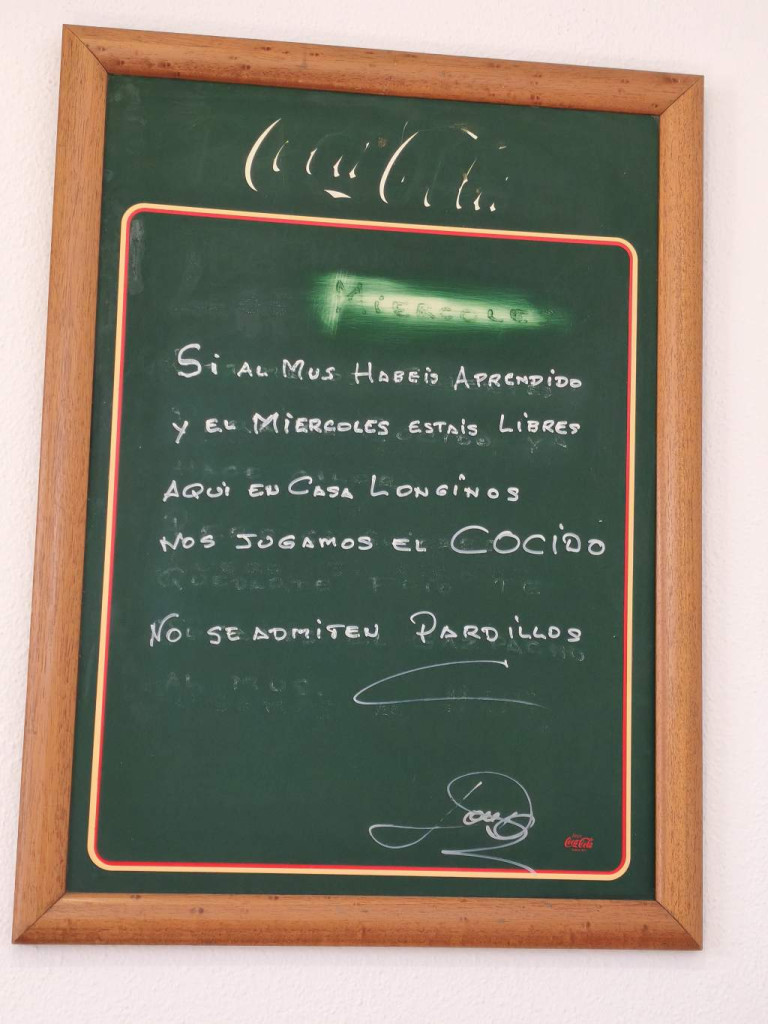 Coca-Cola
MIERCOLE
Si AL MUS HABEIS APRENDIDO
Y EL MIERCOLES ESTAIS LIBRES
AQUI EN CASA LONGINOS
NOS JUGAMOS EL COCIDO
NO SE ADMITEN PARDILLOS
AL MUS
Coca-Cola